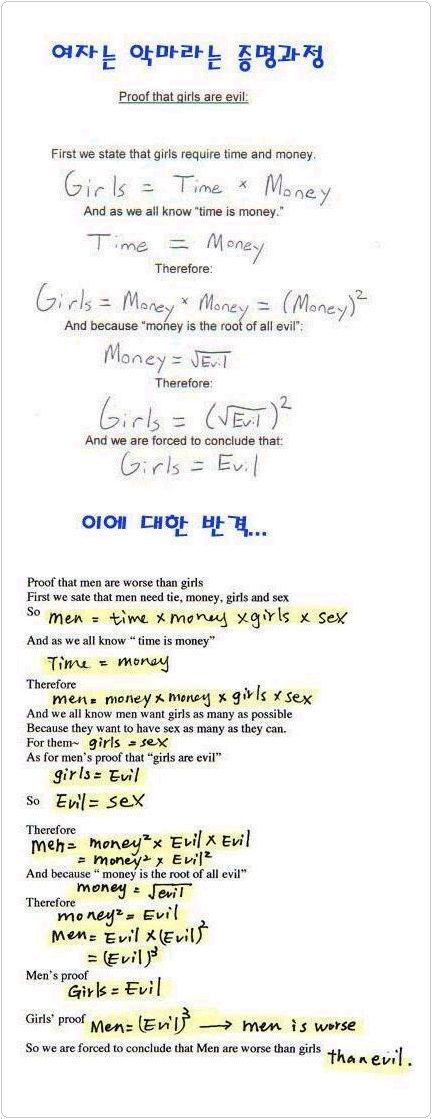 여자는 악마라는 증명과정
Proof that girls are evil:
First we state that girls require time and money.
Girls = Time × Money
And as we all know "time is money."
Time = Money
Therefore:
Girls = Money × Money = (Money)²
And because "money is the root of all evil":
Money = √Evil
Therefore:
Girls = (√Evil)²
And we are forced to conclude that:
Girls = Evil
이에 대한 반격...
Proof that men are worse than girls
First we sate that men need tie, money, girls and sex
So men = time × money × girls × sex
And as we all know " time is money"
Time = money
Therefore
men = money × money × girls × sex
And we all know men want girls as many as possible
Because they want to have sex as many as they can.
For them~ girls = sex
As for men's proof that "girls are evil"
girls = Evil
So Evil = sex
Therefore
Men = money² × Evil × Evil
= money² × Evil²
And because " money is the root of all evil"
money = √evil
Therefore
money² = Evil
Men = Evil × (Evil)²
= (Evil)³
Men's proof
Girls = Evil
Girls' proof Men = (Evil)³ → men is worse
So we are forced to conclude that Men are worse than girls than evil.